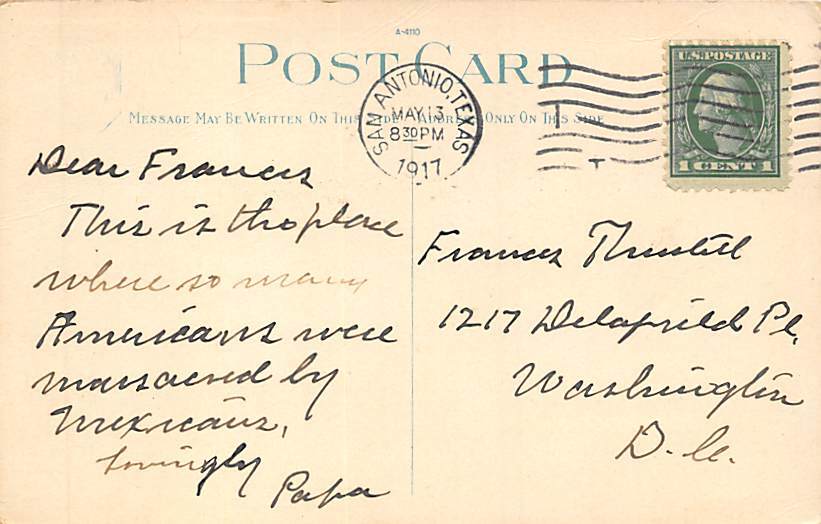 A-4110
POST CARD
MESSAGE MAY BE WRITTEN ON THIS SIDE ADDRESS ONLY ON THIS SIDE
SAN ANTONIO, TEXAS
MAY 13
8 30 PM
1917
U.S. POSTAGE
1 CENT 1
Dear Frances
This is the place
where so many
Americans were
massacred by
Mexicans,
Lovingly
Papa
Frances
1217 Delafield Pl.
Washington
D.C.